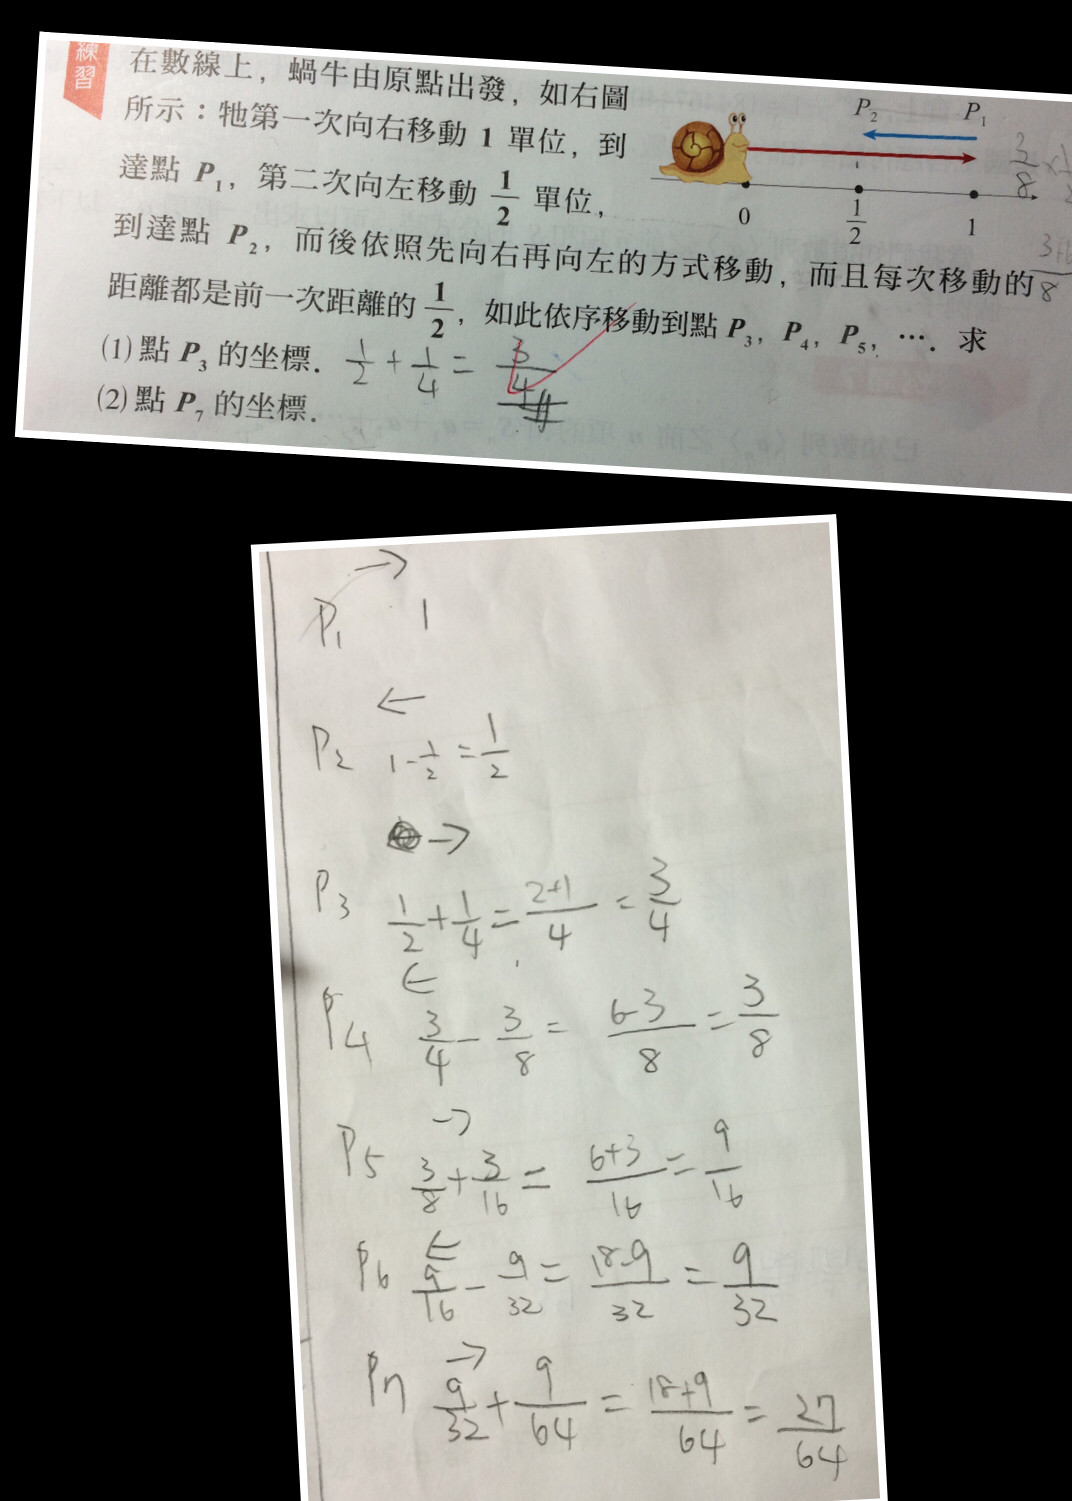 練習
在數線上，蝸牛由原點出發，如右圖
所示：牠第一次向右移動 1 單位，到
達點 P₁，第二次向左移動 1/2 單位，
到達點 P₂，而後依照先向右再向左的方式移動，而且每次移動的
距離都是前一次距離的 1/2，如此依序移動到點 P₃，P₄，P₅，…．求
(1) 點 P₃ 的坐標． 1/2 + 1/4 = 3/4
(2) 點 P₇ 的坐標．
P₂ P₁
0 1/2 1
3/8
→
P₁ 1
←
P₂ 1 - 1/2 = 1/2
→
P₃ 1/2 + 1/4 = 2+1/4 = 3/4
←
P₄ 3/4 - 3/8 = 6-3/8 = 3/8
→
P₅ 3/8 + 3/16 = 6+3/16 = 9/16
←
P₆ 9/16 - 9/32 = 18-9/32 = 9/32
→
P₇ 9/32 + 9/64 = 18+9/64 = 27/64